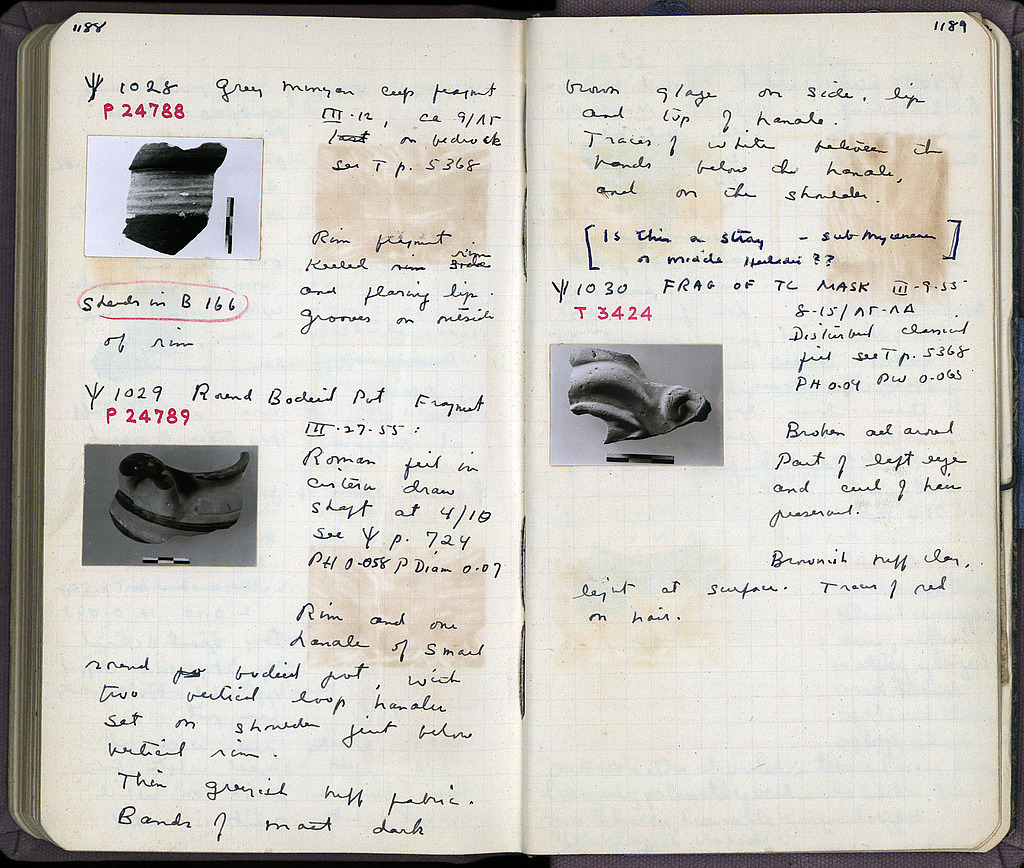 1188
Ψ 1028 Grey Minyan cup fragment
P 24788
III·12, ca 9/ΛΓ
last on bedrock
see T p. 5368
Rim fragment.
Keeled rim side rim
and flaring lip.
Grooves on outside
of rim
Stands in B 166
Ψ 1029 Round Bodied Pot Fragment
P 24789
III·27·55:
Roman fill in
cistern draw
shaft at 4/ΙΘ
see Ψ p. 724
PH 0.058 P Diam 0.07
Rim and one
handle of small
round po bodied pot, with
two vertical loop handles
set on shoulder just below
vertical rim.
Thin greyish buff fabric.
Bands of matt dark
1189
brown glaze on side, lip
and top of handle.
Traces of white between the
bands below the handle,
and on the shoulder.
[Is this a stray – sub Mycenaean
or middle Helladic??]
Ψ 1030 FRAG OF TC MASK III-9-55
T 3424
8-15/ΛΓ-ΛΔ
Disturbed classical
fill see T p. 5368
PH 0.04 PW 0.065
Broken all around
Part of left eye
and curl of hair
preserved.
Brownish buff clay,
light at surface. Traces of red
on hair.